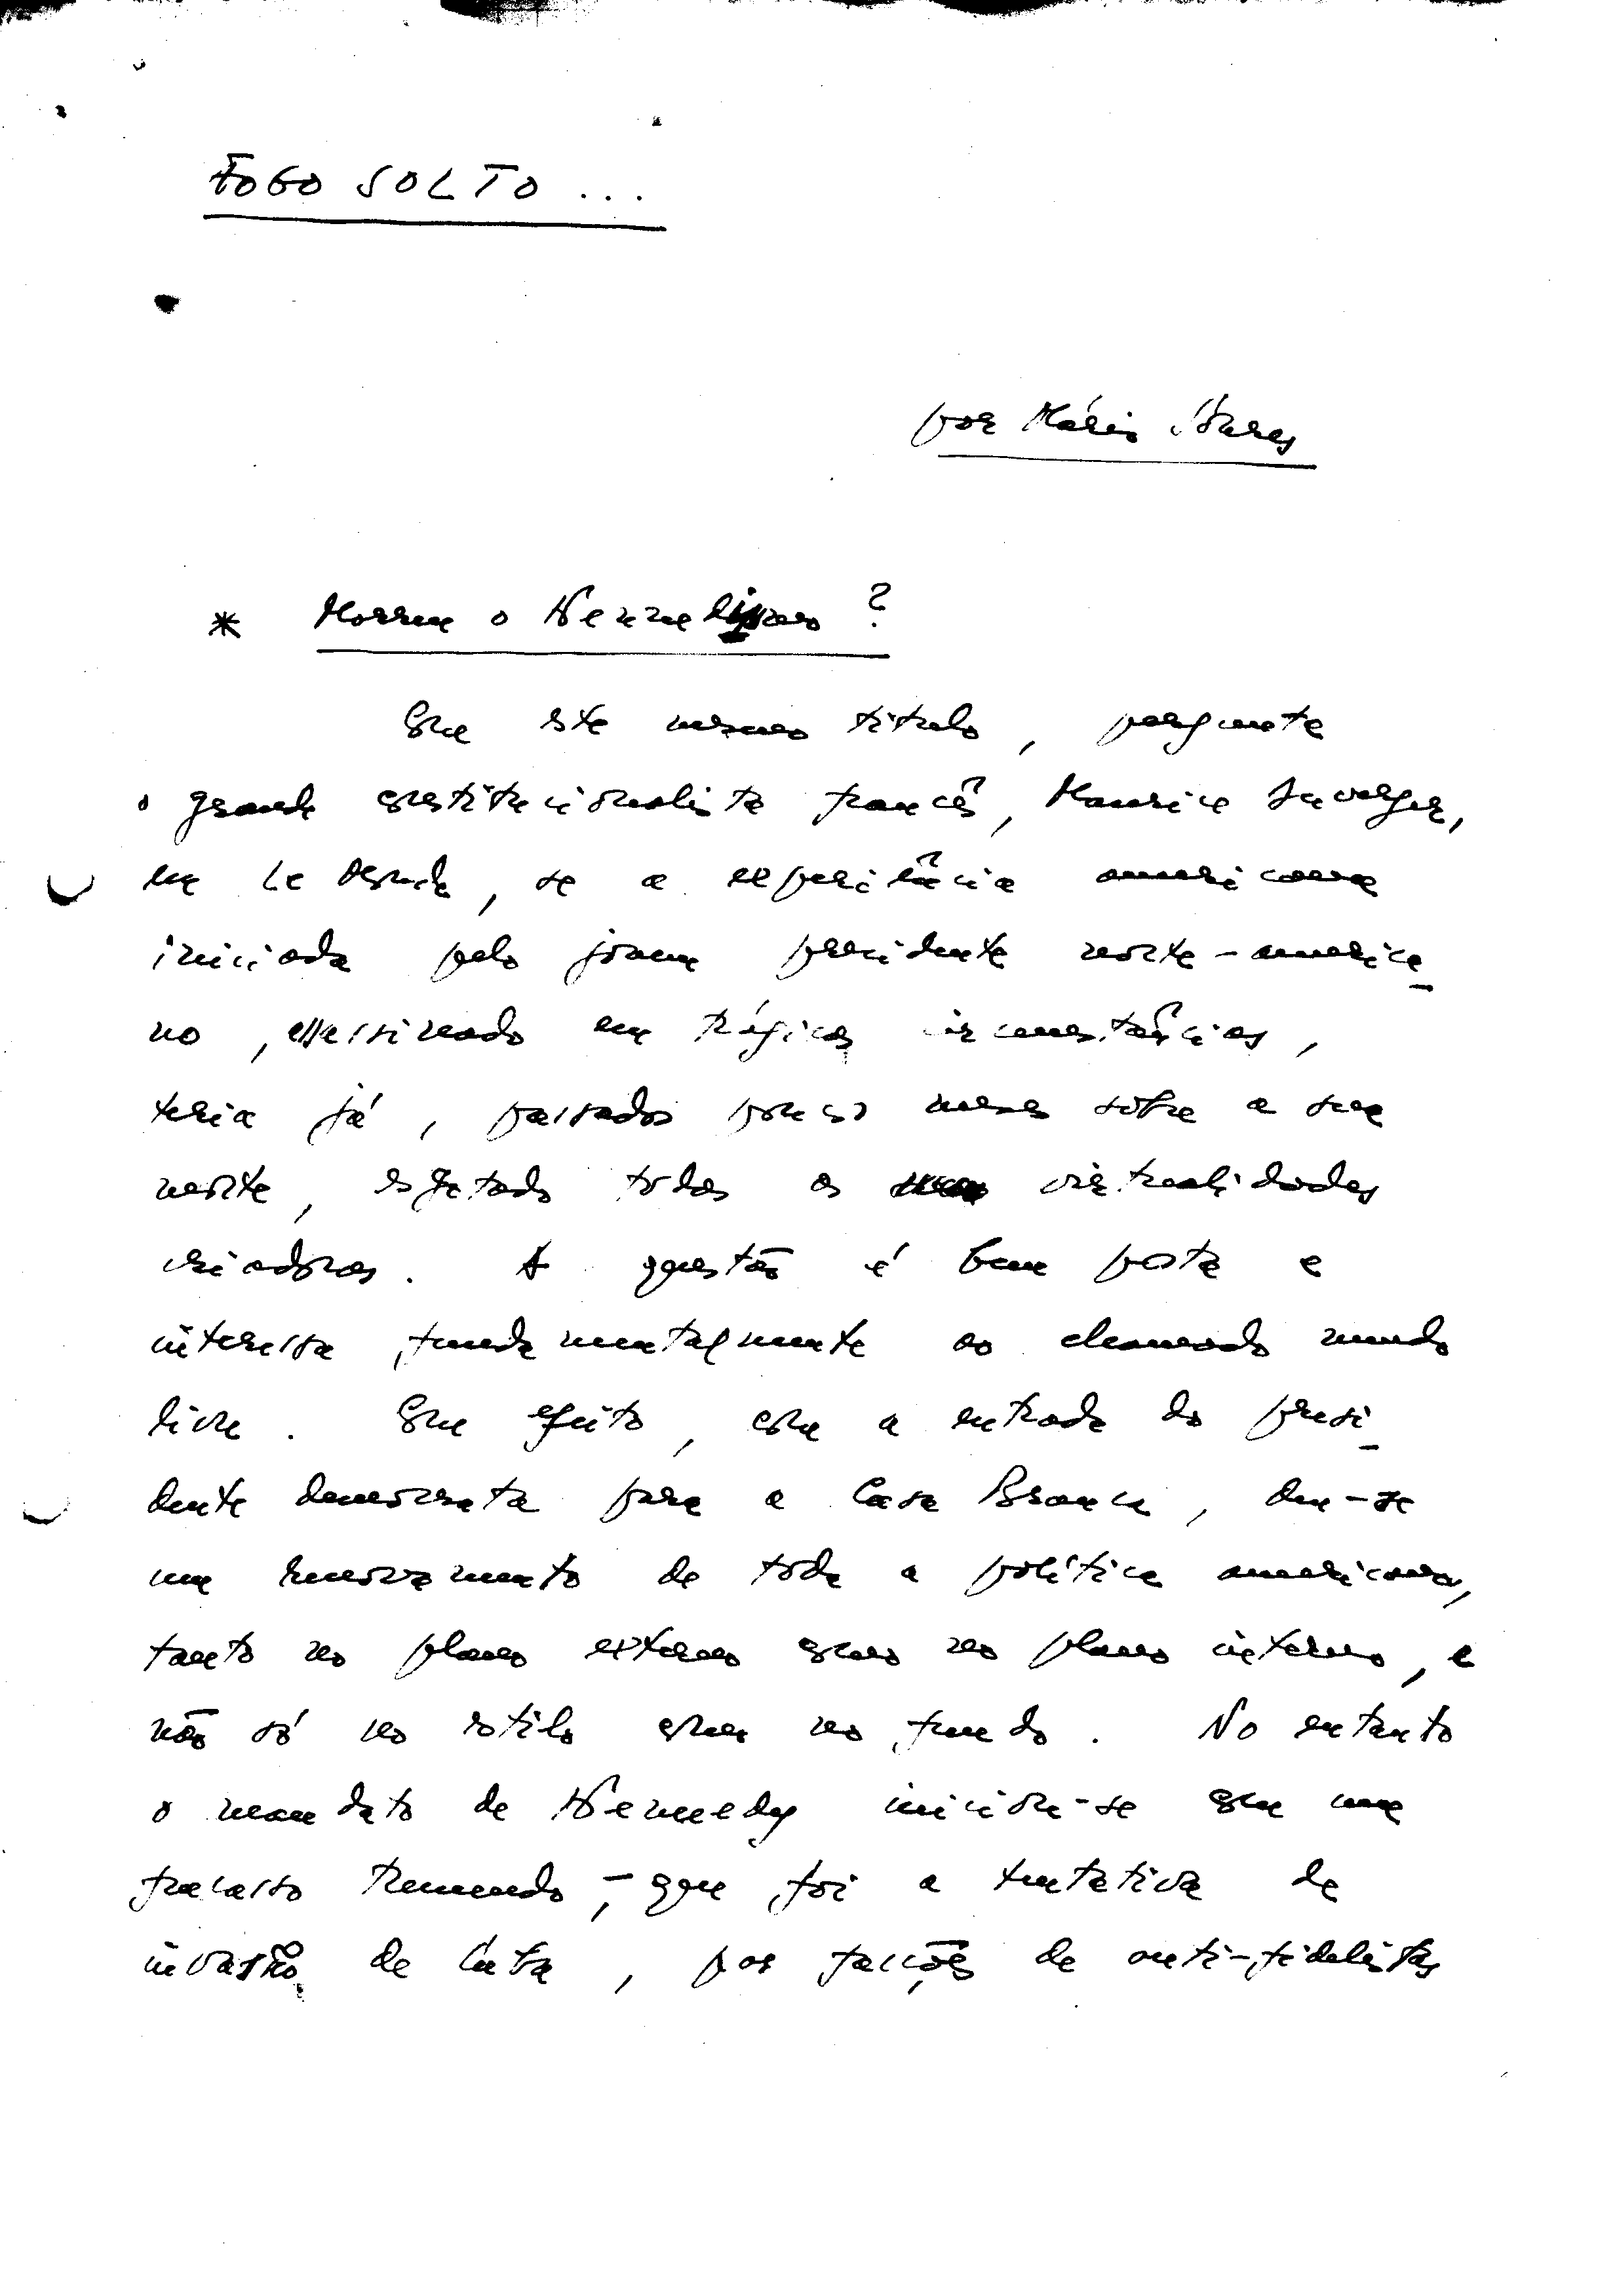 FOGO SOLTO ...
por Mário Soares
* Morreu o Kennedismo ?
Com este mesmo título, pergunta
o grande constitucionalista francês, Maurice Duverger,
em Le Monde, se a experiência americana
iniciada pelo jovem presidente norte-america_
no, assassinado em trágicas circunstâncias,
teria já, passados poucos meses sobre a sua
morte, esgotado todas as virtualidades
criadoras. A questão é bem posta e
interessa fundamentalmente ao chamado mundo
livre. Com efeito, com a entrada do presi_
dente democrata para a Casa Branca, deu-se
um renovamento de toda a política americana,
tanto no plano externo como no plano interno, e
não só no estilo como no fundo. No entanto
o mandato de Kennedy iniciou-se com um
fracasso tremendo, - que foi a tentativa de
invasão de Cuba, por facções de anti-fidelistas